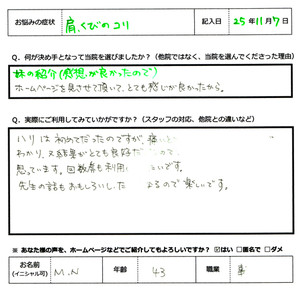 お悩みの症状 肩、くびのコリ 記入日 25年11月7日
Q、何が決め手となって当院を選びましたか?(他院ではなく、当院を選んでくださった理由)
妹の紹介(感想が良かったので)
ホームページを見させて頂いて、とても感じが良かったから。
Q、実際にご利用してみていかがですか?(スタッフの対応、他院との違いなど)
ハリは初めてだったのですが、痛い
わかり、又結果がとても良好だ ので、
思っています。回数券も利用 いです。
先生の話もおもしろいし、た るので楽しいです。
※ あなた様の声を、ホームページなどでご紹介してもよろしいですか? ☑はい □匿名で □ダメ
お名前(イニシャル可) M.N 年齢 43 職業